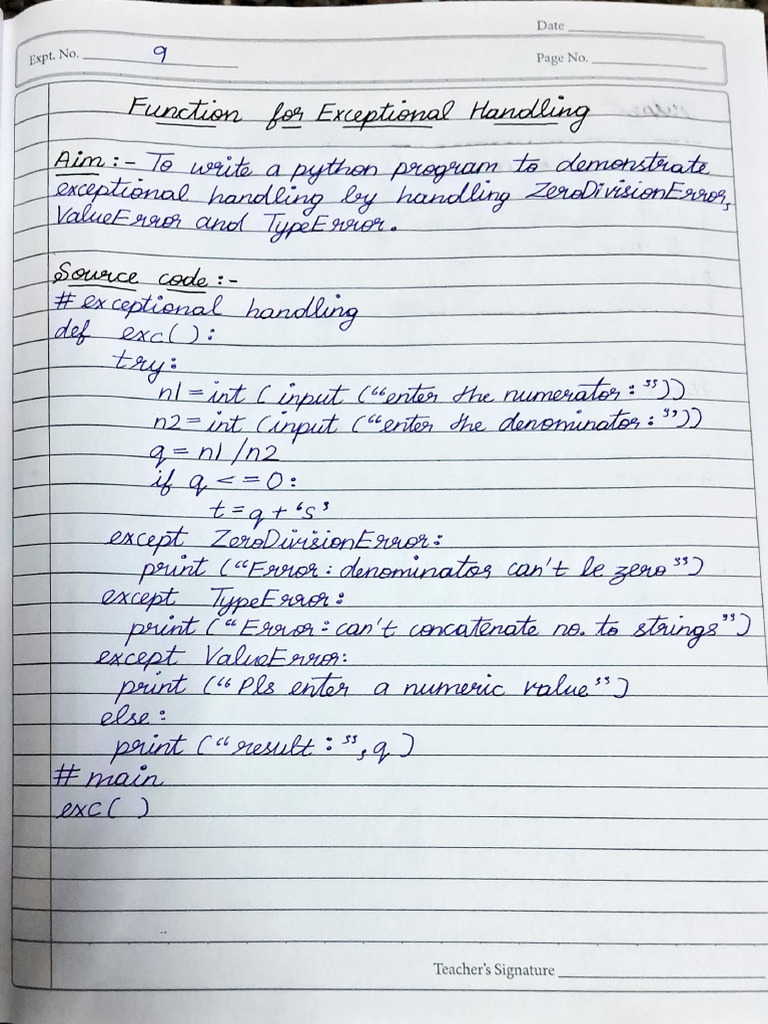 Date
Expt. No. 9
Page No.
Function for Exceptional Handling
Aim :- To write a python program to demonstrate
exceptional handling by handling ZeroDivisionError,
ValueError and TypeError.
Source code :-
# exceptional handling
def exc( ):
try:
n1 = int ( input (“enter the numerator : ”))
n2 = int (input (“enter the denominator : ”))
q = n1 / n2
if q <= 0:
t = q + ‘s’
except ZeroDivisionError:
print (“Error : denominator can't be zero”)
except TypeError:
print (“Error : can't concatenate no. to strings”)
except ValueError:
print (“Pls enter a numeric value”)
else:
print (“result : ”, q )
# main
exc( )
Teacher's Signature